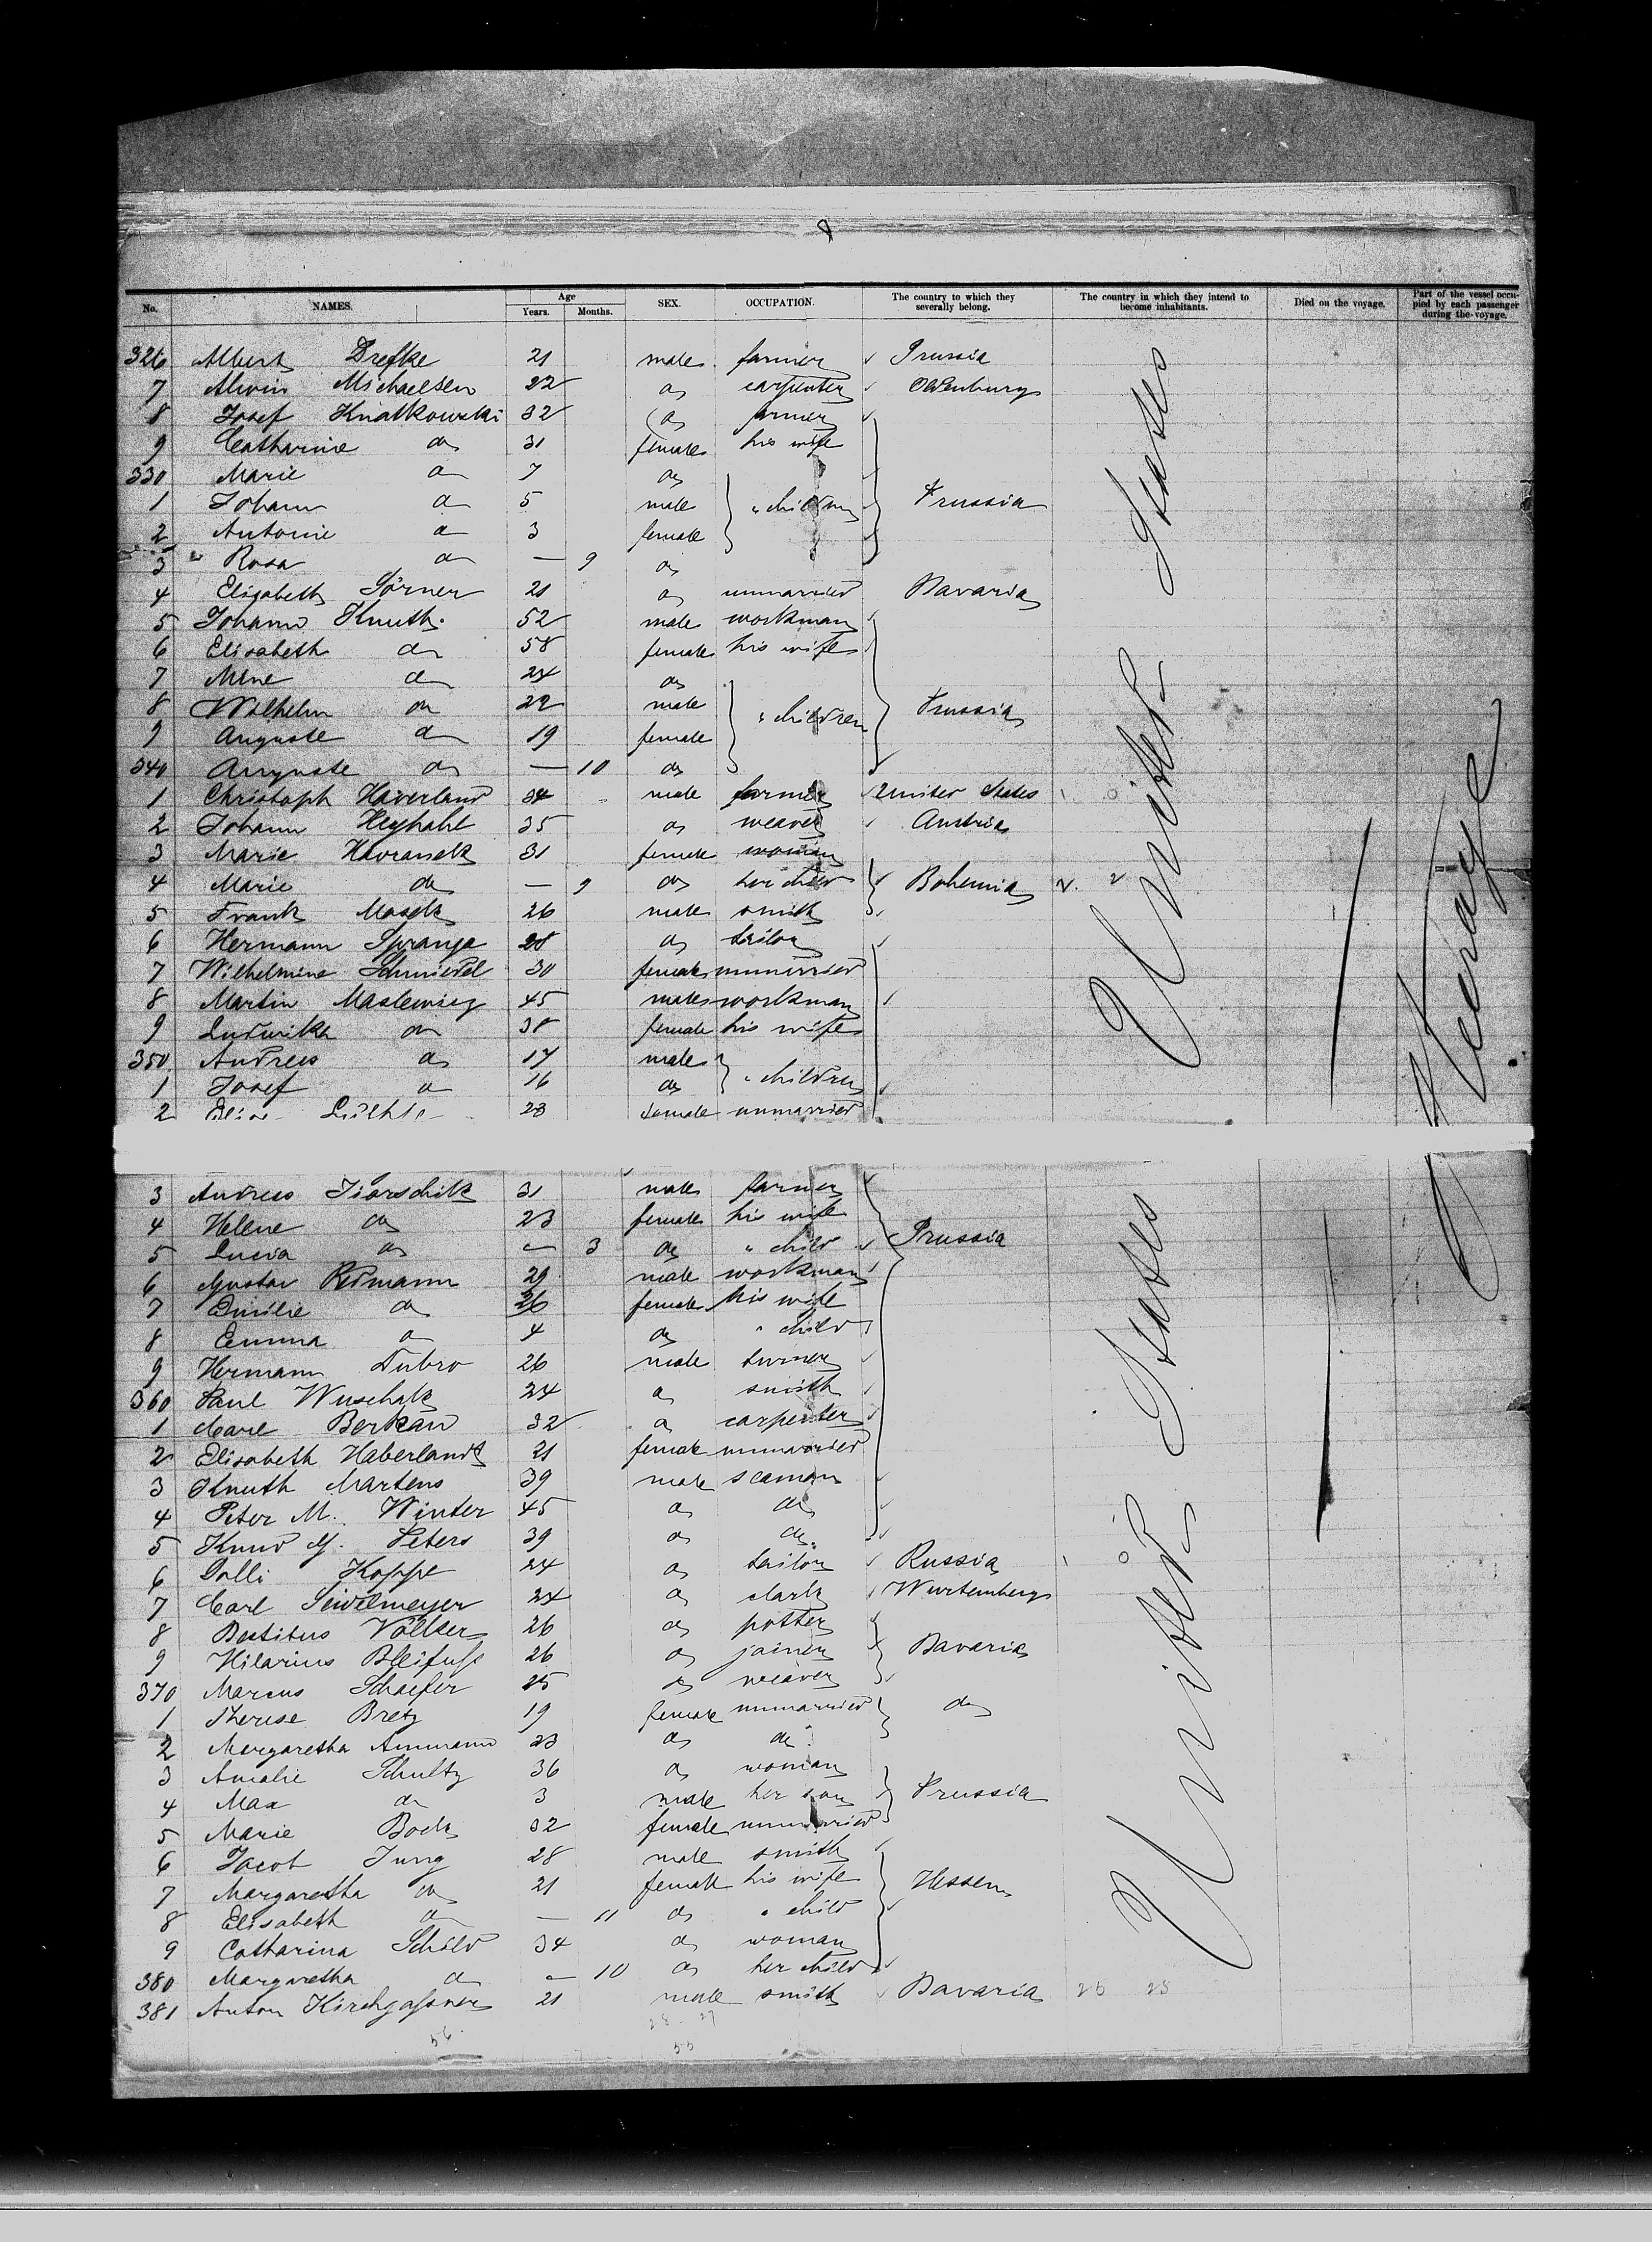 8
No. NAMES. Age Years. Months. SEX. OCCUPATION. The country to which they severally belong. The country in which they intend to become inhabitants. Died on the voyage. Part of the vessel occupied by each passenger during the voyage.
326 Albert Drefke 21 male farmer Prussia
7 Alwin Michaelsen 22 do carpenter Oldenburg
8 Josef Kwatkowski 32 do farmer
9 Catharine do 31 female his wife
330 Marie do 7 do
1 Johann do 5 male " children Prussia
2 Antonie do 3 female
3 Rosa do — 9 do
4 Elisabeth Sörner 21 do unmarried Bavaria
5 Johann Knuth 52 male workman
6 Elisabeth do 58 female his wife
7 Mine do 24 do
8 Wilhelm do 22 male " children Prussia
9 Auguste do 19 female
340 Auguste do — 10 do
1 Christoph Haverland 34 male farmer United States
2 Johann Heyhahl 35 do weaver Austria
3 Marie Havranek 31 female woman
4 Marie do — 9 do her child Bohemia
5 Frank Mosek 26 male smith
6 Hermann Spranga 28 do tailor
7 Wilhelmine Schmiedel 30 female unmarried
8 Martin Maslewicz 45 male workman
9 Ludwika do 38 female his wife
350 Andreas do 17 male
1 Josef do 16 do " children
2 23 female unmarried
3 Andreas 31 male farmer
4 Helene do 23 female his wife
5 Lucia do — 3 do " child Prussia
6 Gustav Redmann 29 male workman
7 Emilie do 26 female his wife
8 Emma do 4 do " child
9 Hermann Dubro 26 male turner
360 Paul Wuschak 24 do smith
1 Carl Berkau 32 do carpenter
2 Elisabeth Haberlandt 21 female unmarried
3 Knuth Martens 39 male seaman
4 Peter M. Winter 45 do do
5 Knud Peters 39 do do
6 Dolli Koppe 24 do tailor Russia
7 Carl Seidelmeyer 24 do clark Wurtemberg
8 Völker 26 do potter
9 Hilarius Bleifuss 26 do joiner Bavaria
370 Marcus Schaefer 25 do weaver
1 Therese Bretz 19 female unmarried do
2 Margaretha Ammann 23 do do
3 Amalie Schultz 36 do woman
4 Max do 3 male her son Prussia
5 Marie Bock 32 female unmarried
6 Jacob Jung 28 male smith
7 Margaretha do 21 female his wife Hessen
8 Elisabeth do — 11 do " child
9 Catharina Schild 34 do woman
380 Margaretha do — 10 do her child
381 Anton Kirchgassner 21 male smith Bavaria
United States
United States
Steerage